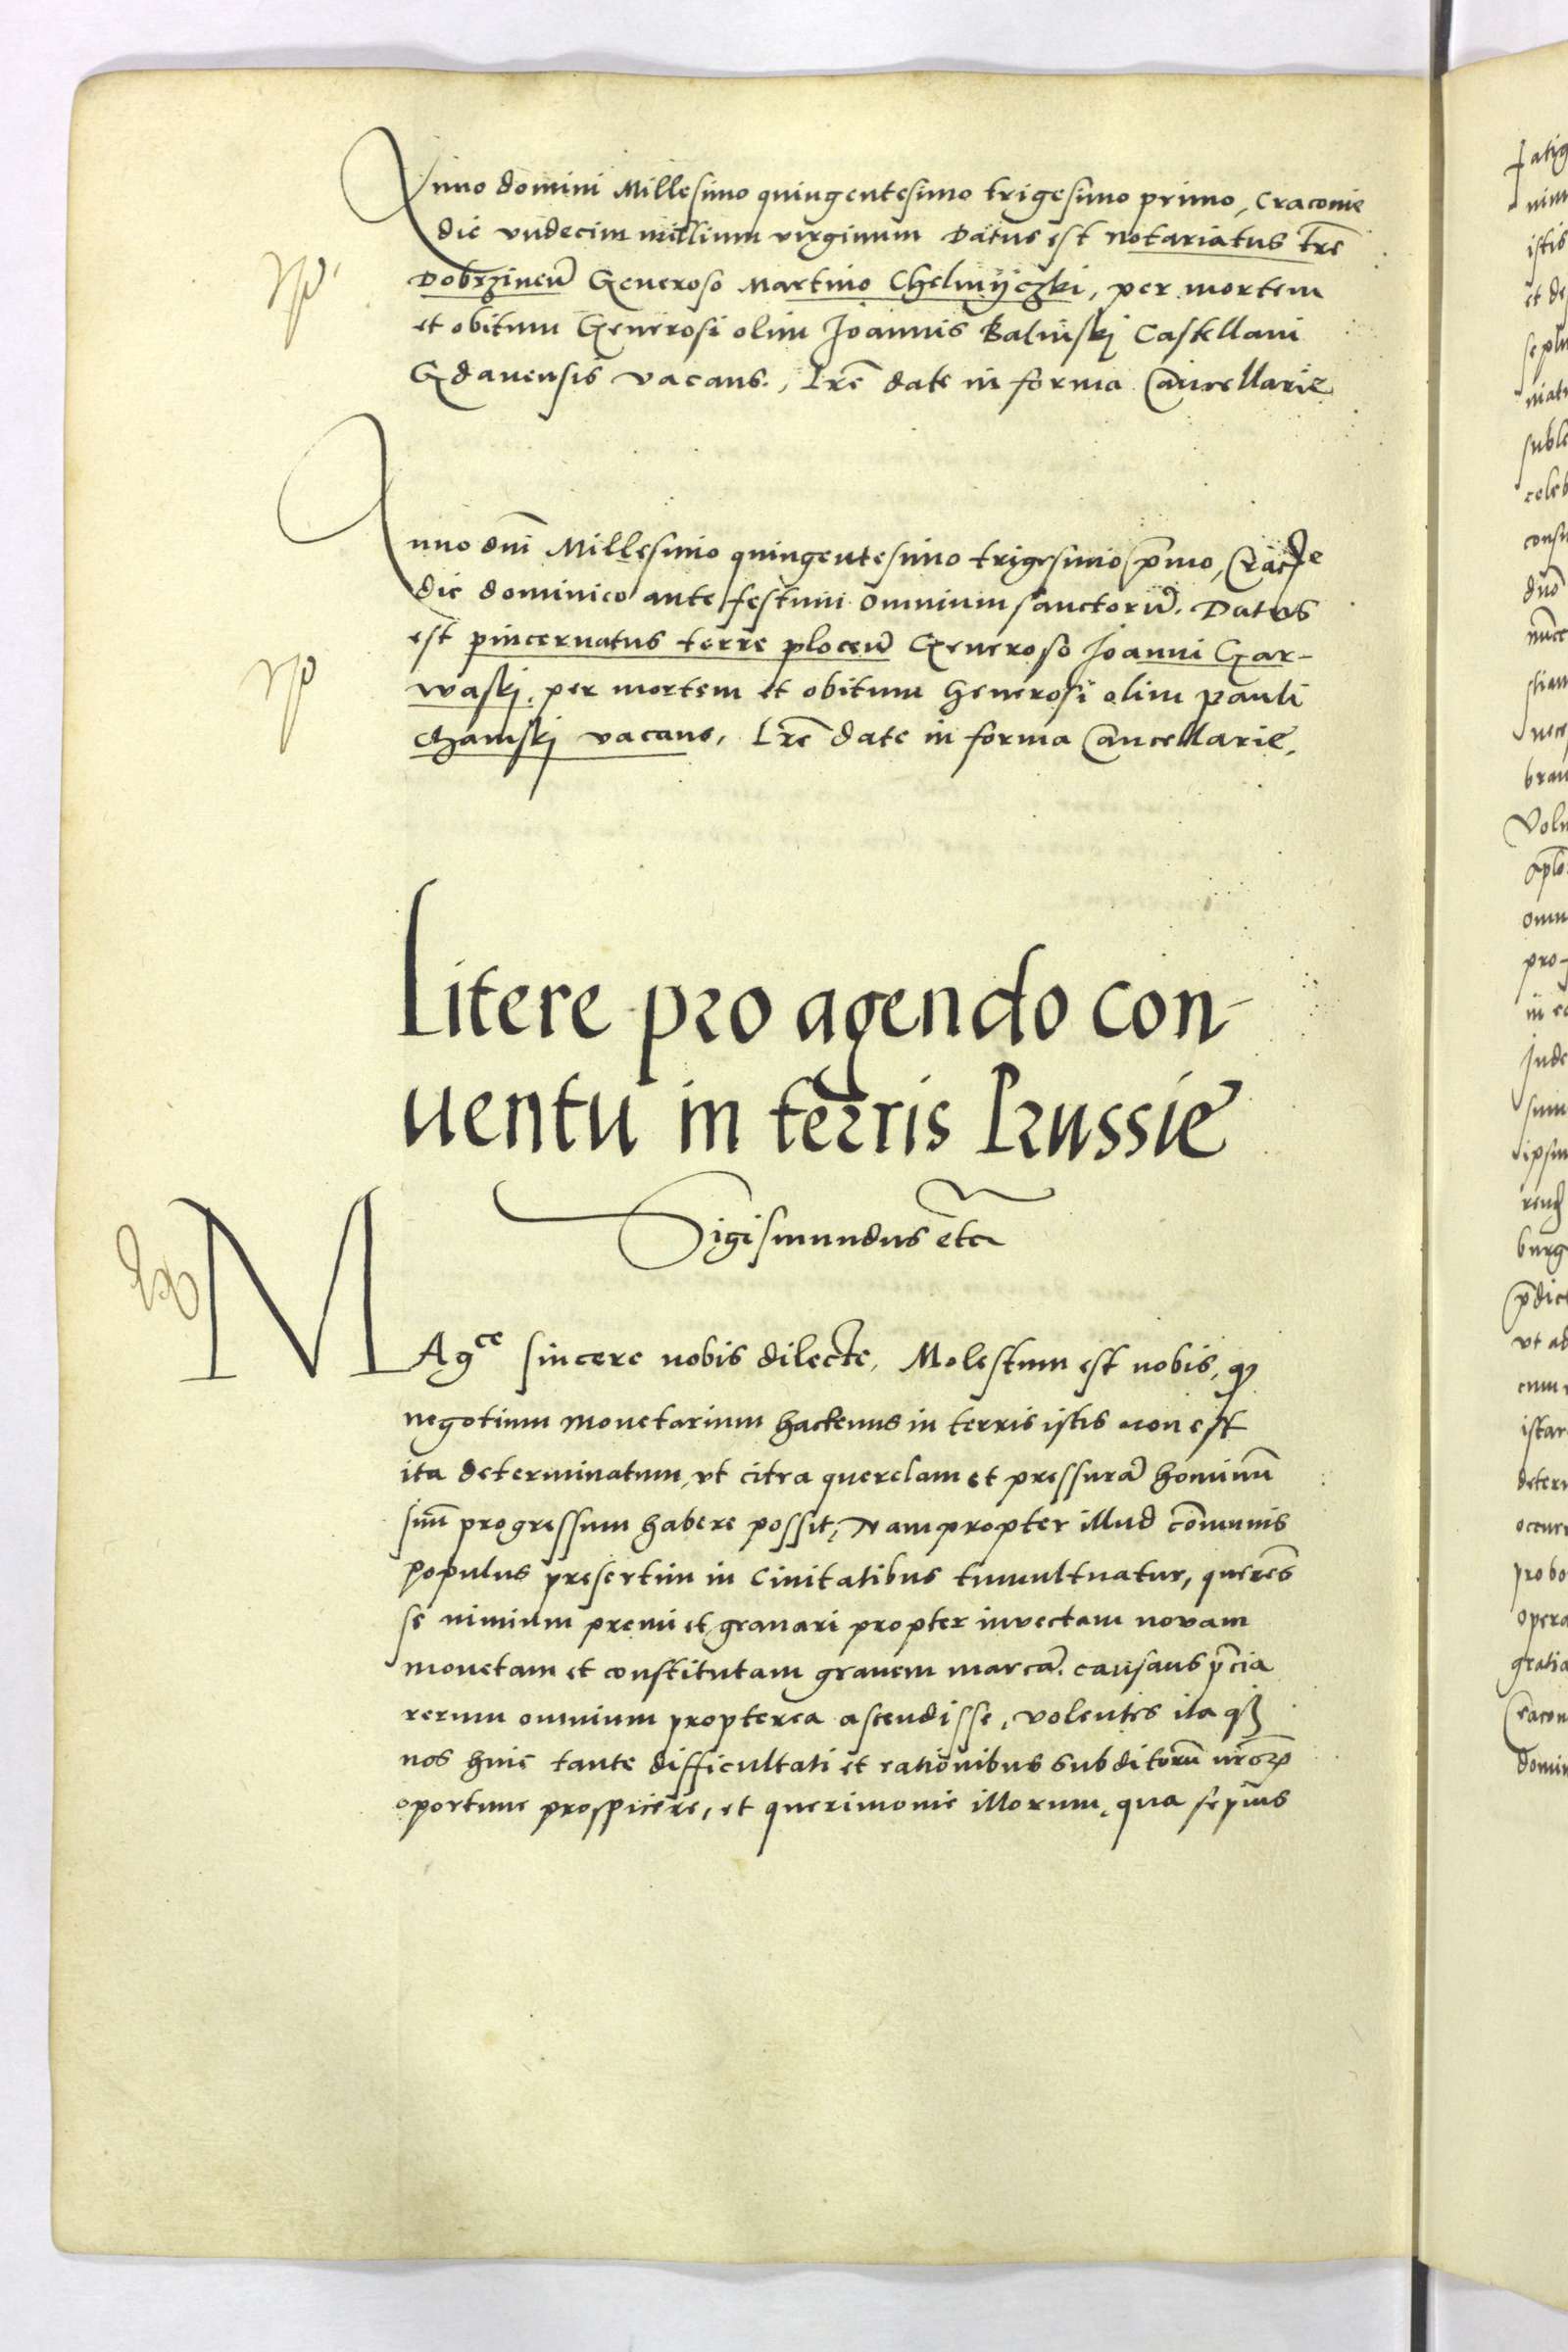 Anno domini Millesimo quingentesimo trigesimo primo, Cracovie
die undecim millium virginum Datus est notariatus tr̄e
Dobrzineñ Generoso Martino Chelmÿczki, per mortem
et obitum Generosi olim Joannis Balinskj Castellani
Gdanensis vacans., Lr̄e date in forma Cancellarie
Anno dnī Millesimo quingentesimo trigesimo p̄mo, Crac̄ie
die dominico ante festum omnium sanctorū. Datus
est pincernatus terre ploceñ Generoso Joanni Gar-
waskj. per mortem et obitum Generosi olim pauli
Chamskj vacans, Lr̄e date in forma Cancellarie,
Litere pro agendo con-
uentu in terris Russie
Sigismundus etc̄
MAgce sincere nobis dilecte, Molestum est nobis, ꝙ
negotium monetarium hactenus in terris istis non est
ita determinatum, ut citra querelam et pressurā hominū
suū progressum habere possit, Nam propter illud cōmunis
populus presertim in Civitatibus tumultuatur, querēs
se nimium premi et gravari propter invectam novam
monetam et constitutam gravem marcā. causans p̄cia
rerum omnium propterea ascendisse, volentes itaqꝫ
nos huic tante difficultati et rationibus subditorū nr̄oꝝ
oportune prospicere, et querimonie illorum, qua sepius